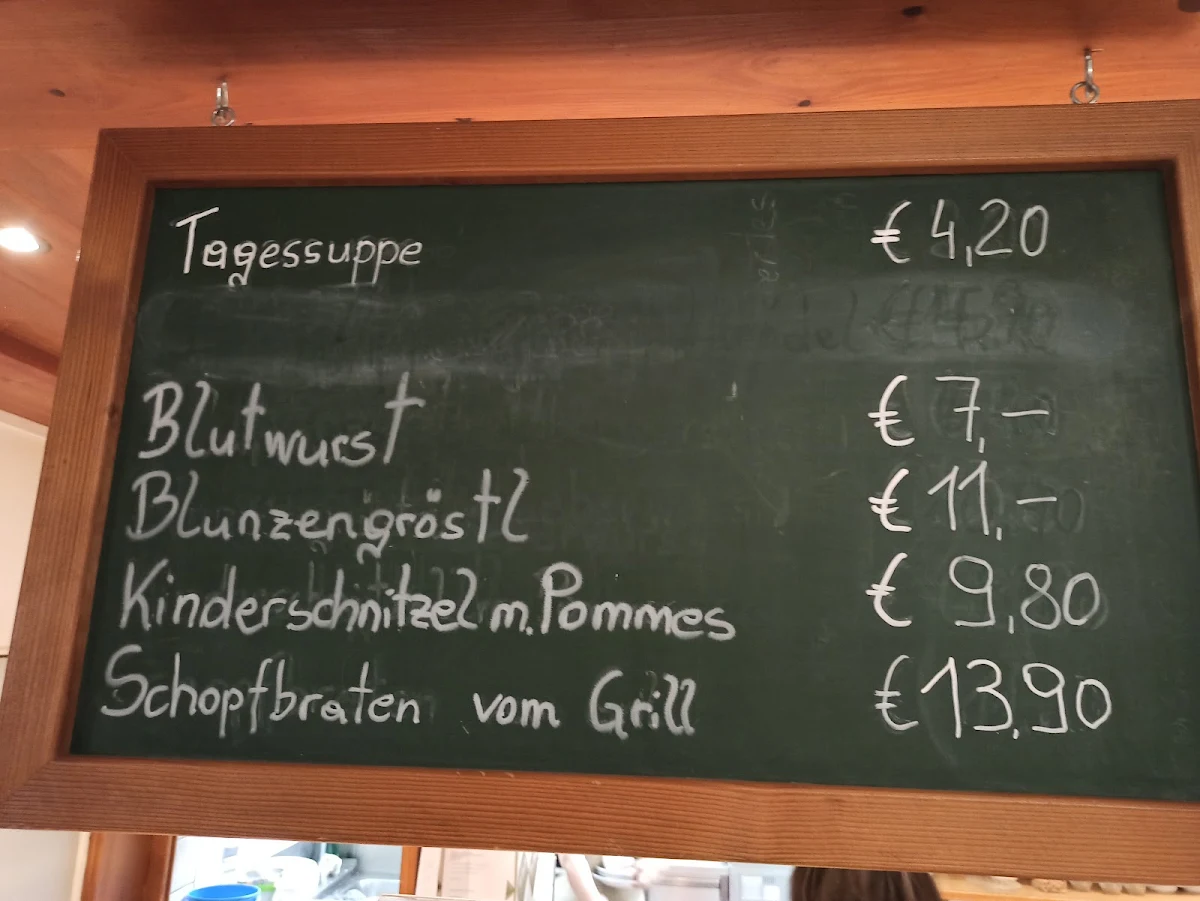 Tagessuppe € 4,20
Blutwurst € 7,–
Blunzengröstl € 11,–
Kinderschnitzel m. Pommes € 9,80
Schopfbraten vom Grill € 13,90